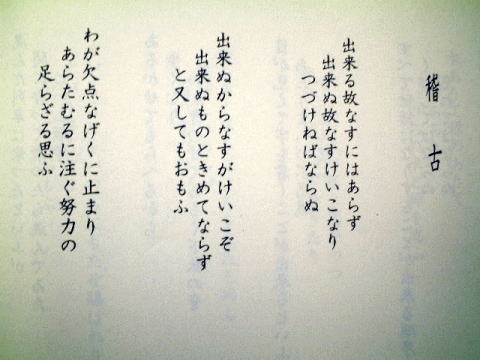 稽古
出来る故なすにはあらず
出来ぬ故なすけいこなり
つづけねばならぬ
出来ぬからなすがけいこぞ
出来ぬものときめてならず
と又してもおもふ
わが欠点なげくに止まり
あらたむるに注ぐ努力の
足らざる思ふ